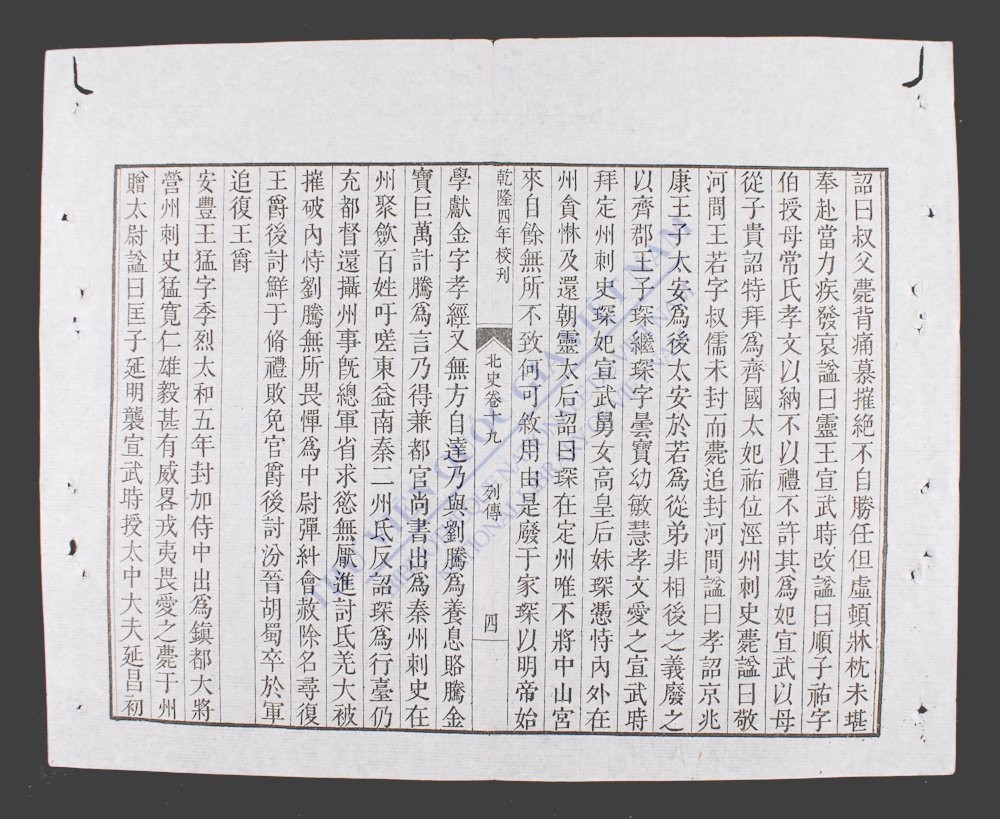 詔曰叔父薨背痛慕摧絶不自勝任但虛頓牀枕未堪
奉赴當力疾發哀諡曰靈王宣武時改諡曰順子祐字
伯授母常氏孝文以納不以禮不許其爲妃宣武以母
從子貴詔特拜爲齊國太妃祐位涇州刺史薨諡曰敬
河間王若字叔儒未封而薨追封河間諡曰孝詔京兆
康王子太安爲後太安於若爲從弟非相後之義廢之
以齊郡王子琛繼琛字曇寶幼敏慧孝文愛之宣武時
拜定州刺史琛妃宣武舅女高皇后妹琛憑恃內外在
州貪惏及還朝靈太后詔曰琛在定州唯不將中山宮
來自餘無所不致何可敘用由是廢于家琛以明帝始
乾隆四年校刊
北史卷十九 列傳 四
學獻金字孝經又無方自達乃與劉騰爲養息賂騰金
寶巨萬計騰爲言乃得兼都官尚書出爲秦州刺史在
州聚斂百姓吁嗟東益南秦二州氐反詔琛爲行臺仍
充都督還攝州事旣總軍省求慾無厭進討氐羌大被
摧破內恃劉騰無所畏憚爲中尉彈糾會赦除名尋復
王爵後討鮮于脩禮敗免官爵後討汾晉胡蜀卒於軍
追復王爵
安豐王猛字季烈太和五年封加侍中出爲鎭都大將
營州刺史猛寬仁雄毅甚有威畧戎夷畏愛之薨于州
贈太尉諡曰匡子延明襲宣武時授太中大夫延昌初
THƯ VIỆN QUỐC GIA VIỆT NAM